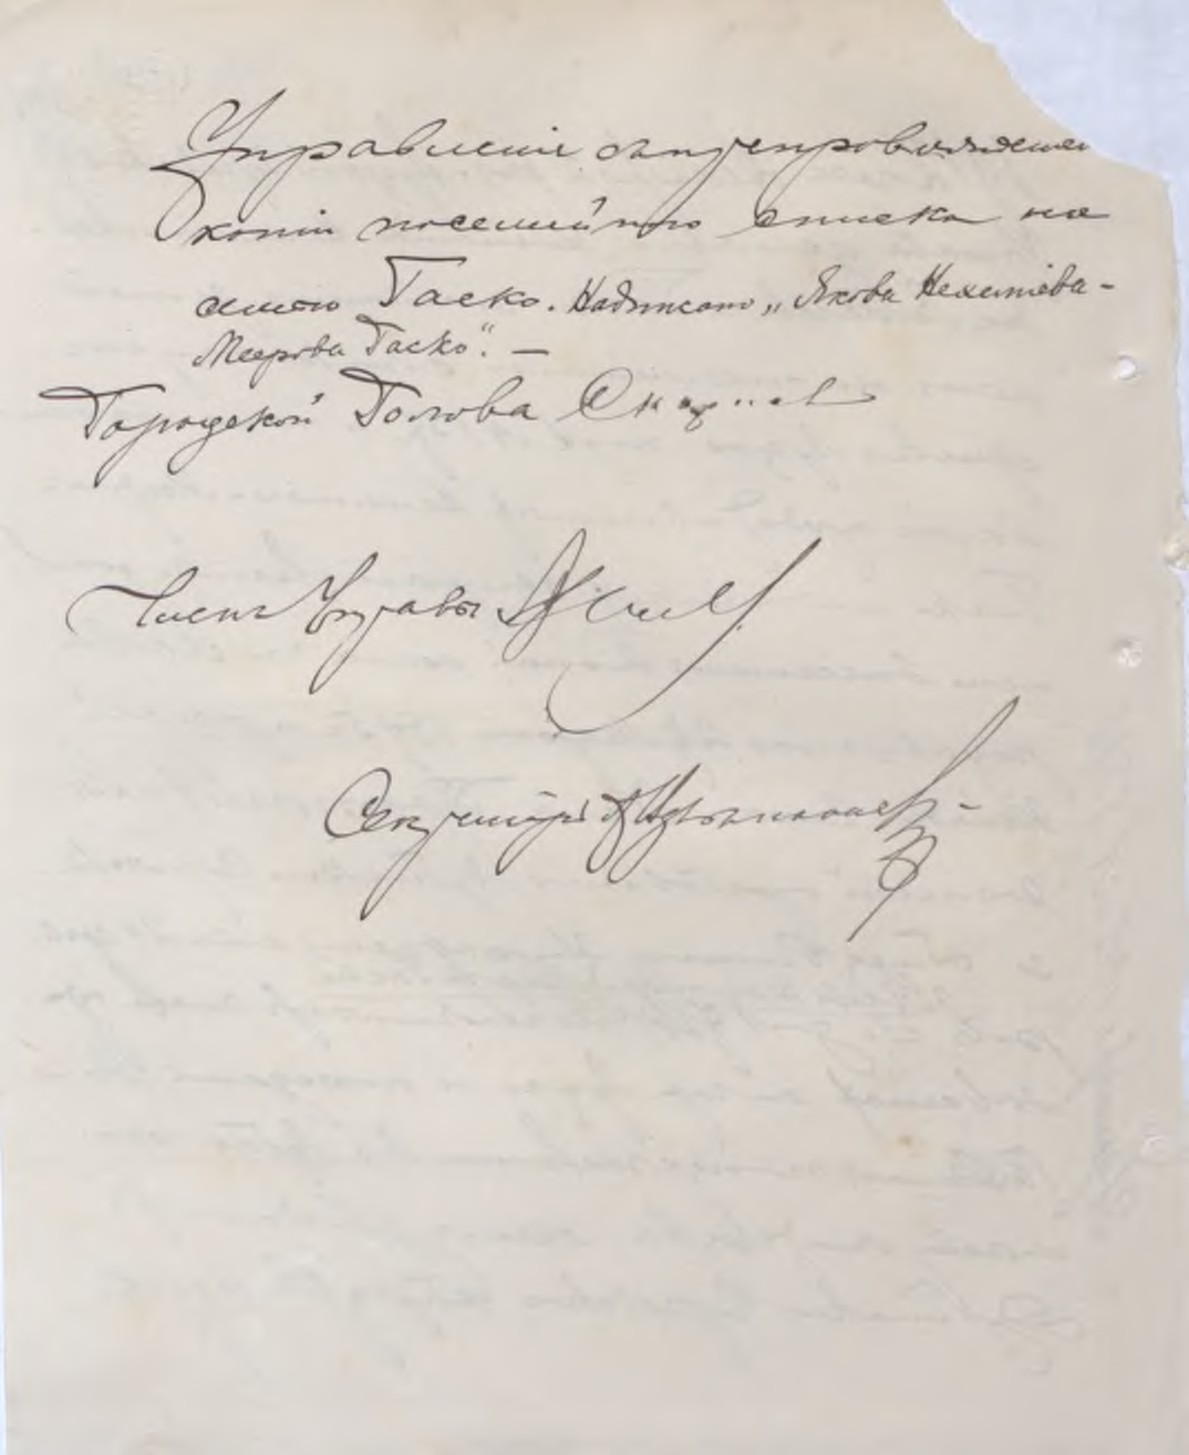 Управленіе съ препровожденіем
копіи посемейнаго списка на
имя Гаско. Надписано „Якова Нехеміева-
Меерова Гаско". —
Городской Голова
Членъ Управы
Секретарь